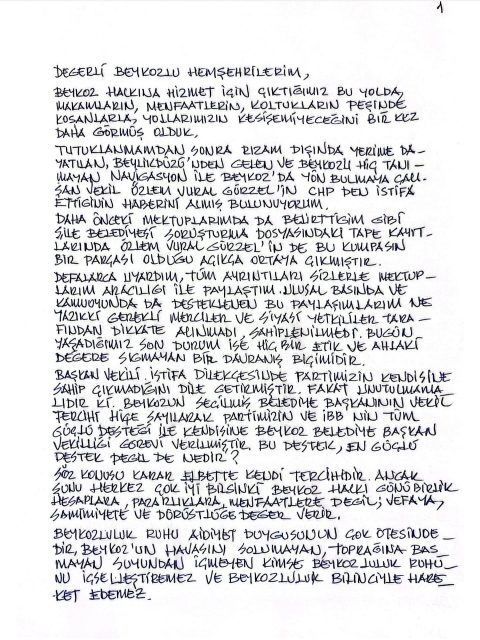 1
DEĞERLİ BEYKOZLU HEMŞEHRİLERİM,
BEYKOZ HALKINA HİZMET İÇİN ÇIKTIĞIMIZ BU YOLDA,
MAKAMLARIN, MENFAATLERİN, KOLTUKLARIN PEŞİNDE
KOŞANLARLA, YOLLARIMIZIN KESİŞEMİYECEĞİNİ BİR KEZ
DAHA GÖRMÜŞ OLDUK.
TUTUKLANMAMDAN SONRA RIZAM DIŞINDA YERİME DA-
YATILAN, BEYLİKDÜZÜ'NDEN GELEN VE BEYKOZU HİÇ TANI-
MAYAN NAVİGASYON İLE BEYKOZ'DA YÖN BULMAYA ÇALI-
ŞAN VEKİL ÖZLEM VURAL GÜRZEL'İN CHP DEN İSTİFA
ETTİĞİNİN HABERİNİ ALMIŞ BULUNUYORUM.
DAHA ÖNCEKİ MEKTUPLARIMDA DA BELİRTTİĞİM GİBİ
ŞİLE BELEDİYESİ SORUŞTURMA DOSYASINDAKİ TAPE KAYIT-
LARINDA ÖZLEM VURAL GÜRZEL'İN DE BU KUMPASIN
BİR PARÇASI OLDUĞU AÇIKÇA ORTAYA ÇIKMIŞTIR.
DEFALARCA UYARDIM, TÜM AYRINTILARI SİZLERLE MEKTUP-
LARIM ARACILIĞI İLE PAYLAŞTIM. ULUSAL BASINDA VE
KAMUOYUNDA DA DESTEKLENEN BU PAYLAŞIMLARIM NE
YAZIKKİ GEREKLİ MERCİLER VE SİYASİ YETKİLİLER TARA-
FINDAN DİKKATE ALINMADI, SAHİPLENİLMEDİ. BUGÜN
YAŞADIĞIMIZ SON DURUM İSE HİÇ BİR ETİK VE AHLAKİ
DEĞERE SIĞMAYAN BİR DAVRANIŞ BİÇİMİDİR.
BAŞKAN VEKİLİ. İSTİFA DİLEKÇESİNDE PARTİMİZİN KENDİSİNE
SAHİP ÇIKMADIĞINI DİLE GETİRMİŞTİR. FAKAT UNUTULMAMA-
LIDIR Kİ. BEYKOZUN SEÇİLMİŞ BELEDİYE BAŞKANININ VEKİL
TERCİHİ HİÇE SAYILARAK PARTİMİZİN VE İBB NİN TÜM
GÜÇLÜ DESTEĞİ İLE KENDİSİNE BEYKOZ BELEDİYE BAŞKAN
VEKİLLİĞİ GÖREVİ VERİLMİŞTİR. BU DESTEK, EN GÜÇLÜ
DESTEK DEĞİL DE NEDİR?
SÖZ KONUSU KARAR ELBETTE KENDİ TERCİHİDİR. ANCAK
ŞUNU HERKEZ ÇOK İYİ BİLSİNKİ BEYKOZ HALKI GÜNÜBİRLİK
HESAPLARA, PAZARLIKLARA, MENFAATLERE DEĞİL; VEFAYA,
SAMİMİYETE VE DÜRÜSTLÜĞE DEĞER VERİR.
BEYKOZLULUK RUHU AİDİYET DUYGUSUNUN ÇOK ÖTESİNDE-
DİR, BEYKOZ'UN HAVASINI SOLUMAYAN, TOPRAĞINA BAS-
MAYAN SUYUNDAN İÇMEYEN KİMSE BEYKOZLULUK RUHU-
NU İÇSELLEŞTİREMEZ VE BEYKOZLULUK BİLİNCİYLE HARE-
KET EDEMEZ.